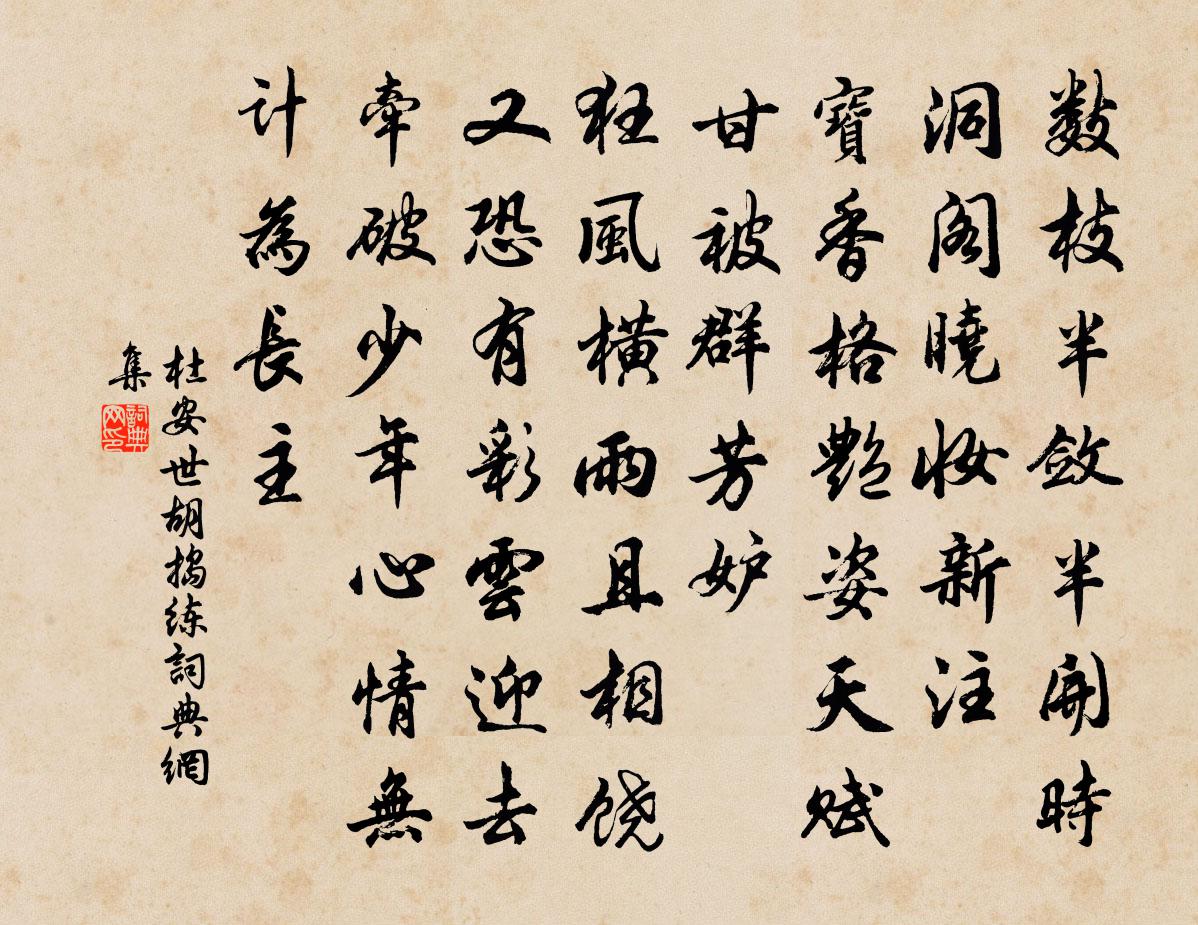 數枝半斂半開時
洞閣曉妝新注
寶香格艷姿天賦
甘被群芳妒
狂風橫雨且相饒
又恐有彩雲迎去
牽破少年心情無
計為長主
杜安世胡搗练詞典網
集
詞典
网印